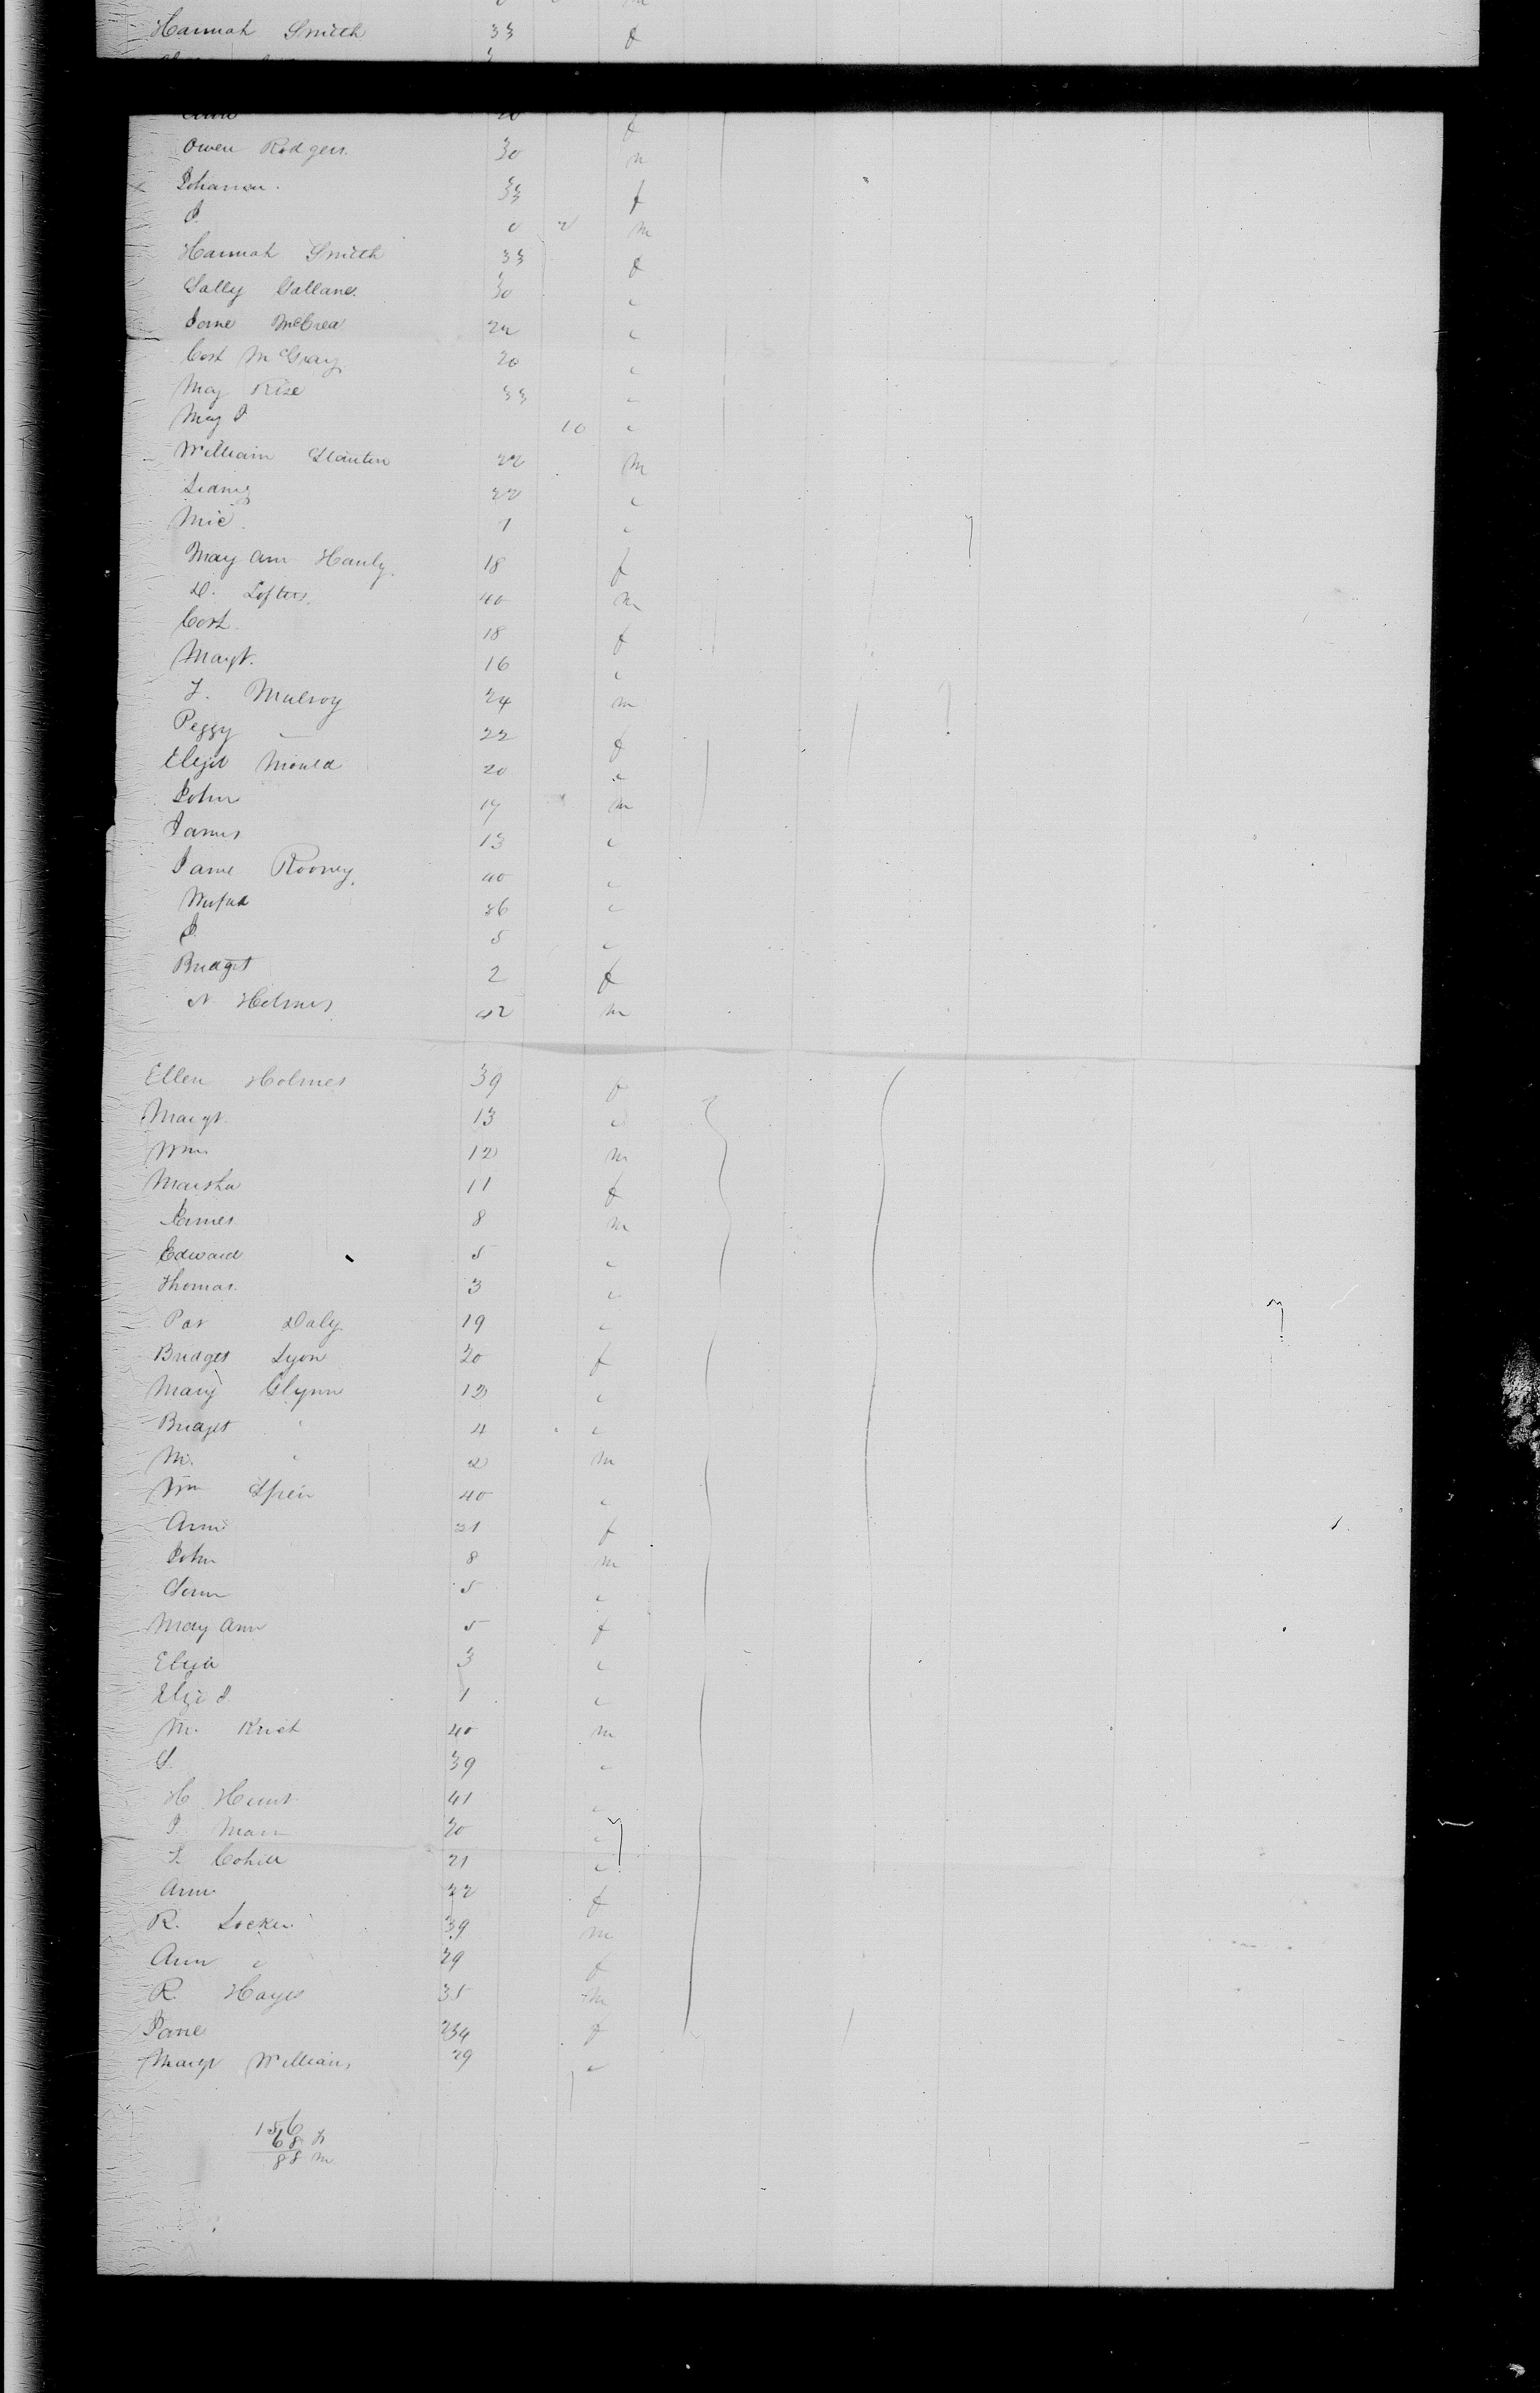 Hannah Smith 33 f
Ann 20 f
Owen Rodgers 30 m
Johanna 33 f
J. 0 2 m
Hannah Smith 33 f
Sally Gallane 30 "
Jane McCrea 22 "
Cath McGray 20 "
May Rise 33 "
May J 10 "
William Stanten 22 m
Sidney 22 "
Mic 1 "
May Ann Hanly 18 f
D. Loftus 40 m
Cath 18 f
Mayt. 16 "
T. Mulroy 24 m
Peggy " 22 f
Mould 20 "
John 17 m
James 13 "
Jame Rooney 40 "
36 "
J. 5 "
Bridget 2 f
N Holmes 42 m
Ellen Holmes 39 f
Margt. 13 "
Wm 12 m
Marsha 11 f
James 8 m
Edward 5 "
Thomas 3 "
Pat Daly 19 "
Bridget Lyon 20 f
Mary Glynn 12 "
Bridget " 4 "
M. " 2 m
Wm 40 "
Ann 31 f
John 8 m
5 "
May Ann 5 f
Eliza 3 "
1 "
M. 40 m
S. 39 "
H Hunt 41 "
J. Man 20 "
T. Cohill 21 "
Ann 22 f
R. Locker 39 m
Ann " 29 f
R. Hayes 35 m
Jane 234 f
Margt William 29 "
156
68 f
88 m